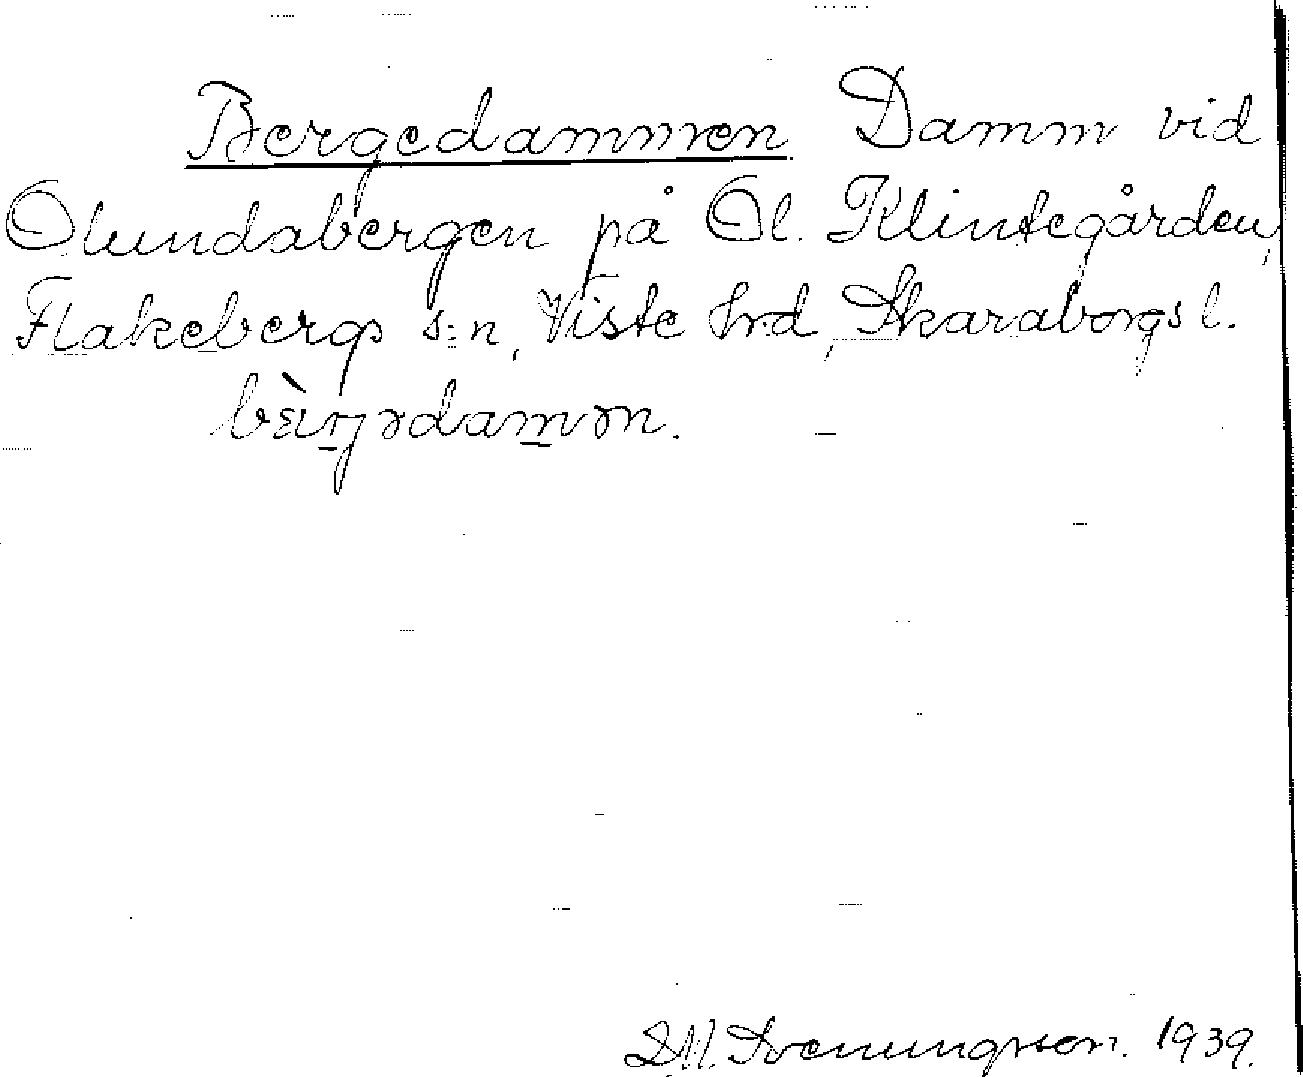 Bergedammen Damm vid
Olundabergen på Ol. Klintegården,
Flakebergs s:n, Viste hrd, Skaraborgs l.
bæ̀rjədamən.
Svenungsson. 1939.